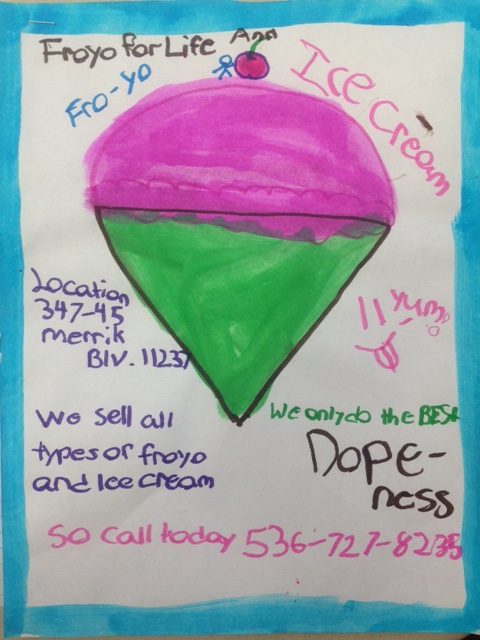 Froyo for Life Ann
Fro-yo
Ice cream
Location
347-45
merrik
Blv. 11237
Yum!
We sell all
types of froyo
and Ice cream
We only do the BEST
DOPE-
ness
So call today 536-727-8235